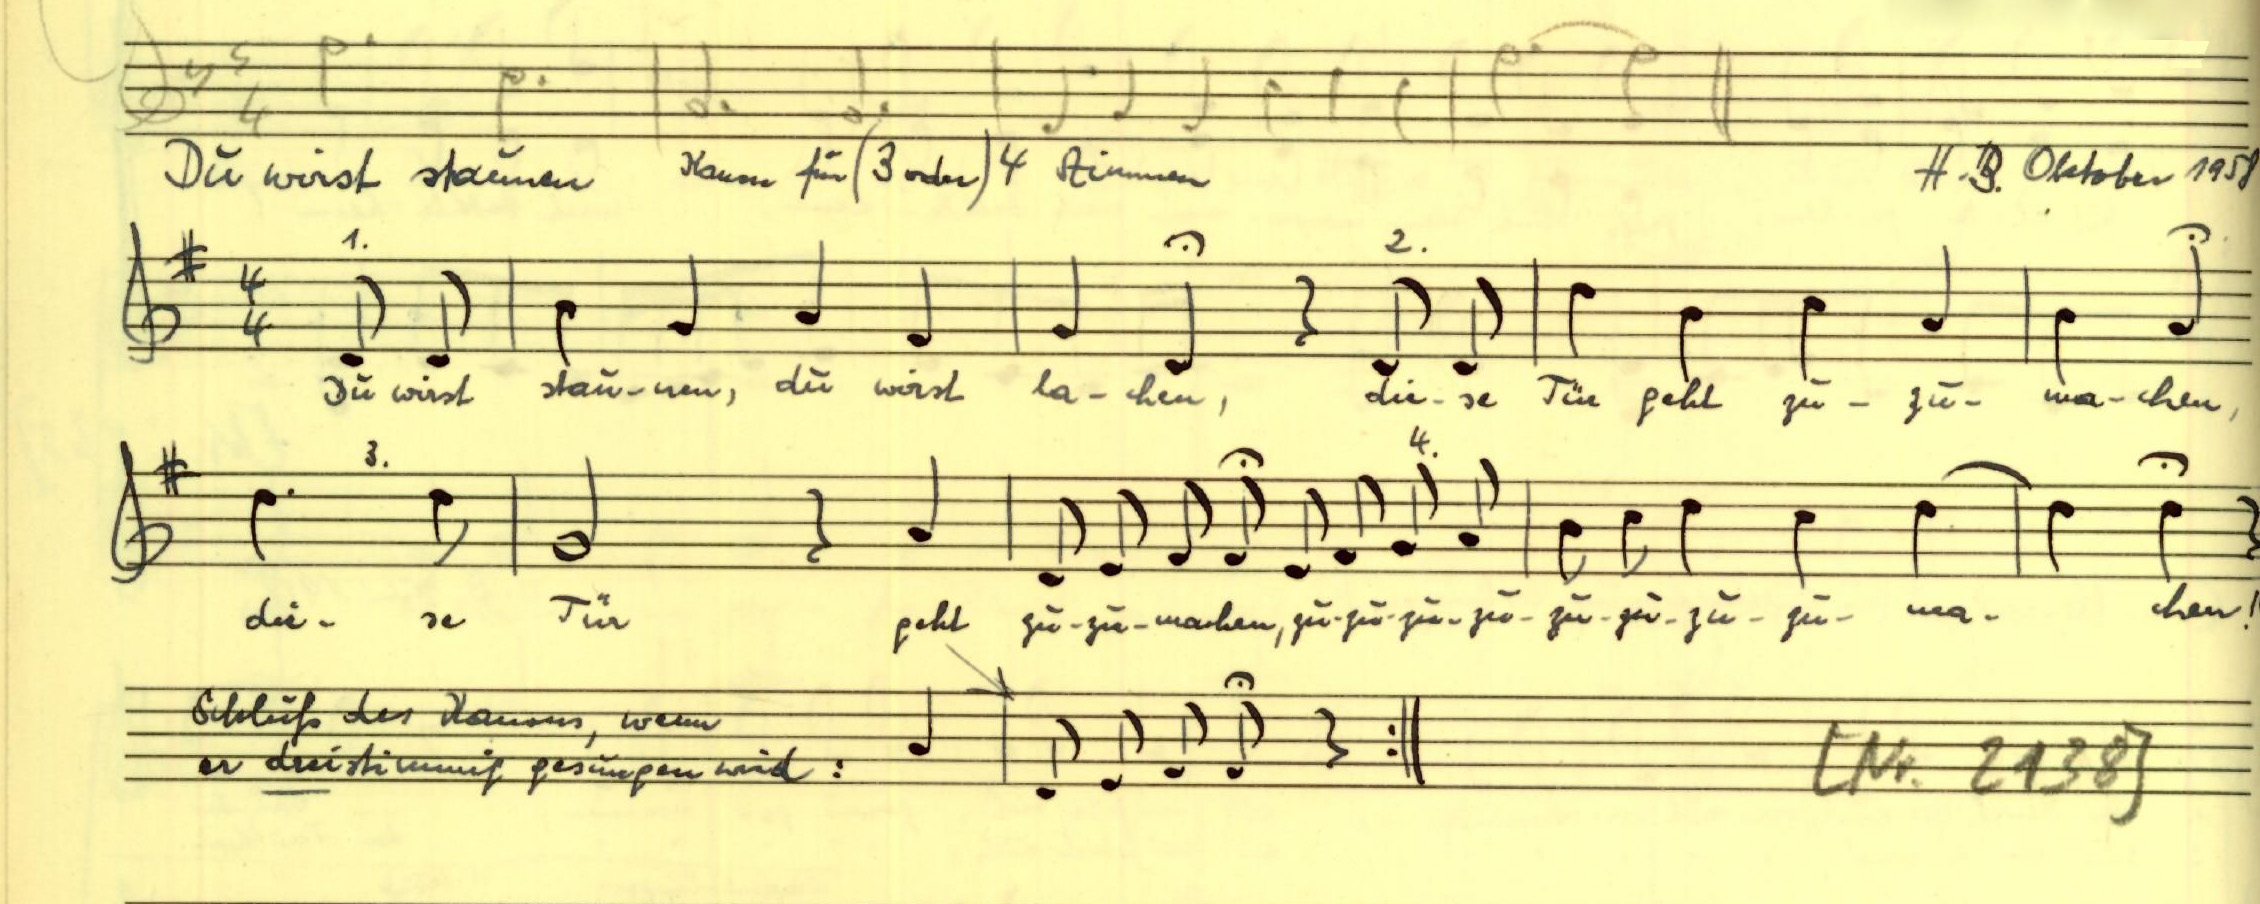 4
Du wirst staunen Kanon für (3 oder) 4 Stimmen H. B. Oktober 1958
4 4 1. 2.
Du wirst stau-nen, du wirst la-chen, die-se Tür geht zu-zu-ma-chen,
3. 4.
die-se Tür geht zu-zu-machen, zu-zu-zu-zu-zu-zu-zu-zu-ma-chen!
Schluß des Kanons, wenn
er dreistimmig gesungen wird:
[Nr. 2138]